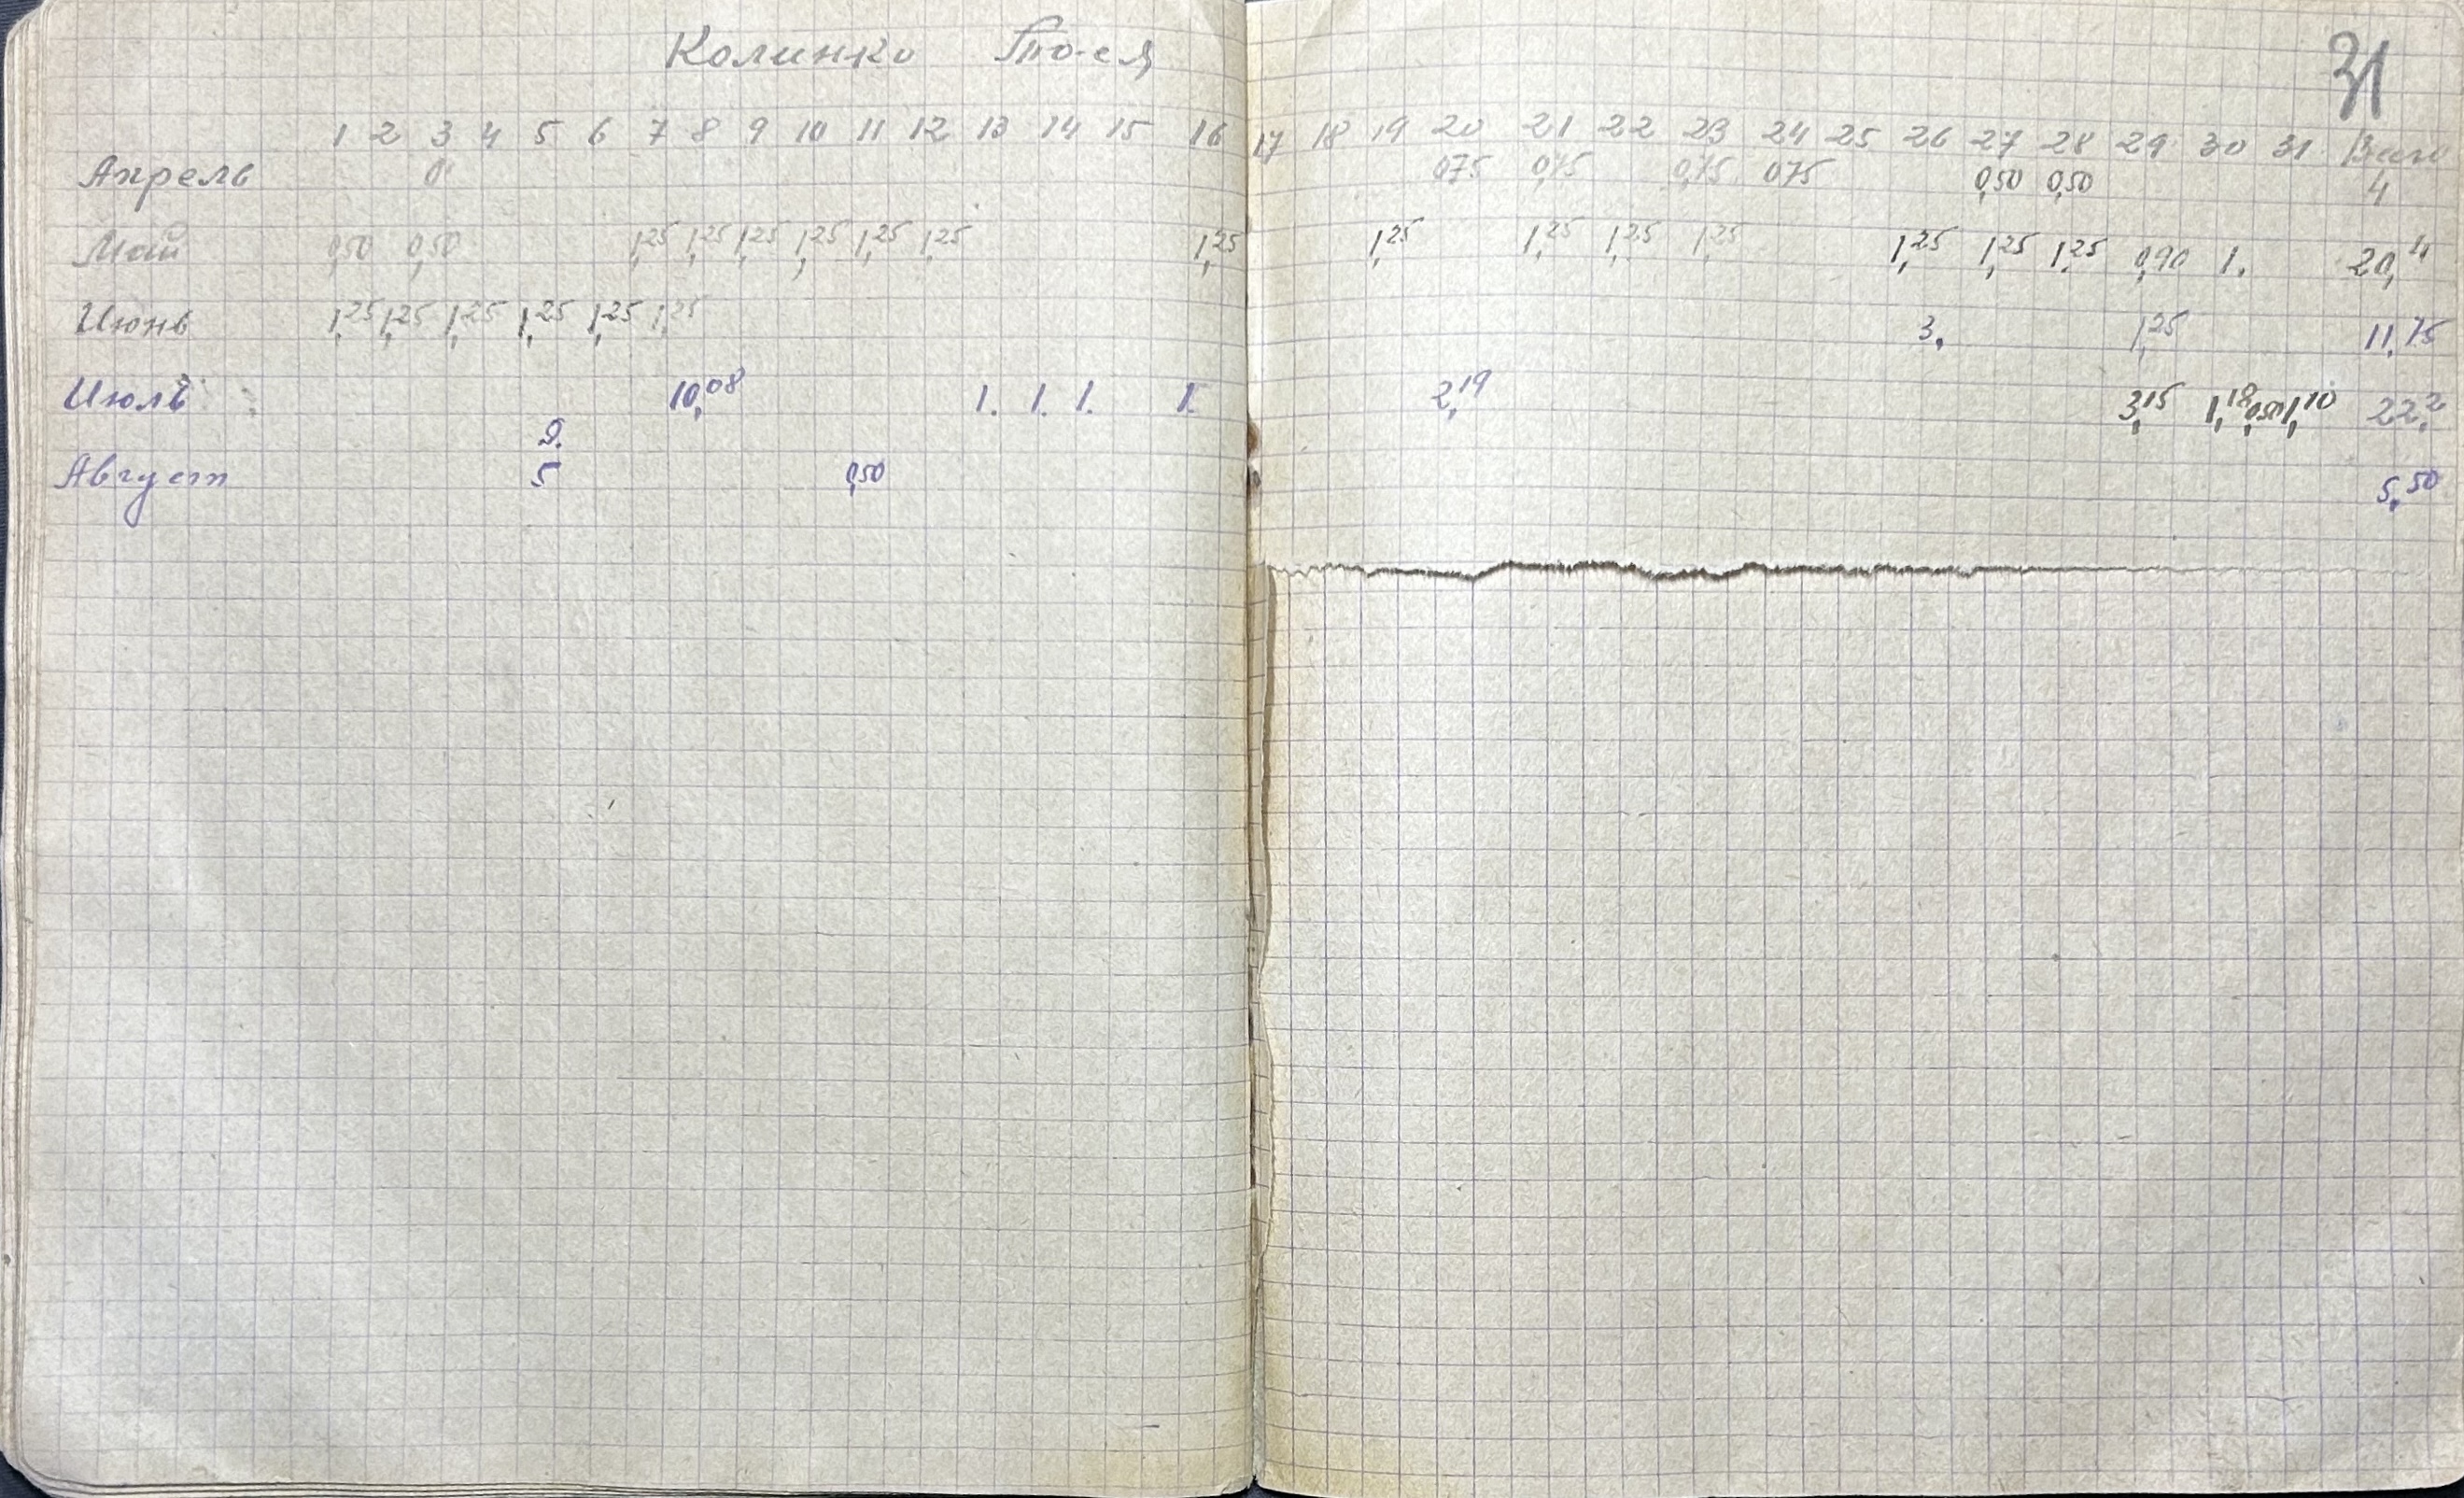 Колинко
31
1 2 3 4 5 6 7 8 9 10 11 12 13 14 15 16 17 18 19 20 21 22 23 24 25 26 27 28 29 30 31 Всего
Апрель 0,75 0,75 0,75 0,75 0,50 0,50 4
Май 0,50 0,50 1,25 1,25 1,25 1,25 1,25 1,25 1,25 1,25 1,25 1,25 1,25 1,25 1,25 1,25 0,90 1. 20,4
Июнь 1,25 1,25 1,25 1,25 1,25 1,25 3, 1,25 11,75
Июль 10,08 1. 1. 1. 1. 2,19 3,15 1,18 0,50 1,10 22,2
Август 5 0,50 5,50